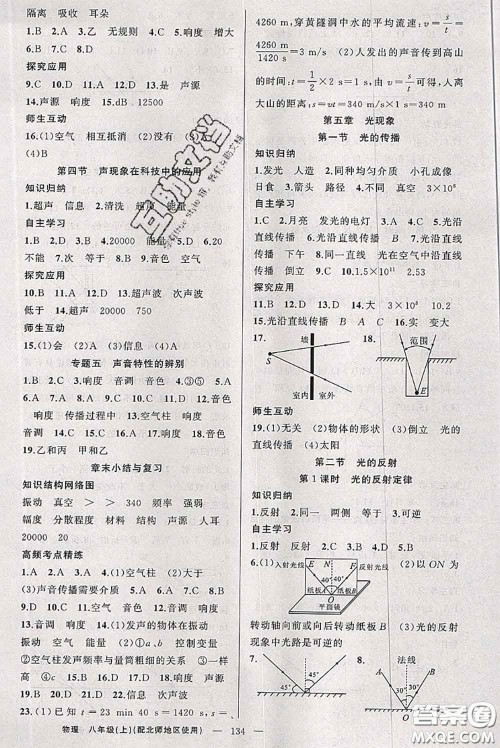 隔离 吸收 耳朵
1.B 2.A 3.乙 无规则 4.D 5.响度 增大
6.B 7.D 8.B
探究应用
9.C 10.D 11.C 12.D 13.是 声源
14.声源 响度 15.dB 12500
师生互动
16.(1)空气 相互抵消 (2)没有 (3)A
(4)B
第四节 声现象在科技中的应用
知识归纳
1.超声 信息 2.清洗 超声 能量
自主学习
1.B 2.D 3.D 4.20000 能量 5.D 6.20
不能 7.次 等于 8.D 9.B 10.音色 空气
探究应用
11.D 12.A 13.D 14.D 15.超声波 次声波
低于 16.超声波 20000 750
师生互动
17.(1)会 (2)A (3)信息 (4)A
专题五 声音特性的辨别
1.B 2.C 3.响度 音调 音色 4.③⑤ 5.A
6.音色 响度 传播过程中 7.空气柱 音调 响度
8.D 9.C 10.A 11.D 12.音调 音色 响度
音调 13.C 14.D 15.B 16.D 17.B 18.B
19.乙和丁 丙和丁 甲和乙
章末小结与复习
知识结构网络图
振动 真空 > > 340 频率 强弱
幅度 分散程度 材料 结构 声源 人耳
20000 20
高频考点精练
1.D 2.D 3.C 4.(1)空气柱 (2)大于 (3)
(3)声音传播需要介质 5.D 6.C 7.D 8.B
9.A 10.A 11.D 12.A 13.B 14.B 15.B
16.C 17.C 18.响度 音色 19.次声波 声源的
振动 空气 能量 20.①a、b 控制变量
②空气柱发声频率与量筒粗细的关系 ③一样
高 ④c 21.①响度 大 ②音调 高
22.①D ②A ③C ④B
23.(1)已知 t=23 min 40 s=1420 s s=
4260 m,穿黄隧洞中水的平均流速:v=s/t=
4260 m/1420 s=3 m/s (2)人发出的声音传到高山
的时间:t=1/2×2 s=1 s 由v=s/t可得,人离
大山的距离:s=vt=340 m/s×1 s=340 m
第五章 光现象
第一节 光的传播
知识归纳
1.光源 人造 2.光源 同种均匀介质 小孔成像
日食 3.箭头 路径 方向 4.3×10⁸
自主学习
1.C 2.月亮 发光的电灯 3.C 4.C 5.光沿
直线传播 下午 6.光沿直线传播 7.A 8.光沿
直线传播 倒立 9.C 10.1.5×10¹¹ 2.53
探究应用
11.B 12.D 13.D 14.大 3×10⁸
15.光沿直线传播 B A C 16.实 变大
17.
墙
S
室内 室外
18.
范围
E
师生互动
19.(1)无关 (2)物体的形状 (3)倒立 光的
直线传播 (4)太阳
第二节 光的反射
第1课时 光的反射定律
知识归纳
1.反射 2.同一 两侧 等于 3.可逆
自主学习
1.反射 反射 2.B 3.B 4.A 5.60°
6.(1)
入射光线
E
N
F
反射光线
40°
40°
纸板A
纸板B
O
平面镜
(2)以ON为
转动轴向前或向后转动纸板B (3)在光的反射
现象中光路是可逆的
7.
30°
45°
8.
法线
45°
O
物理 八年级(上)(配北师地区使用) 134